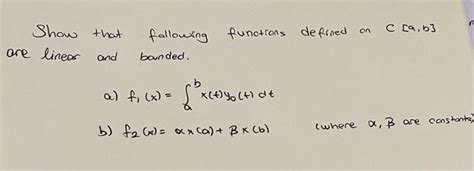 Show that following functions defined on C [a,b]
are linear and bounded.
a) f₁(x) = ∫ₐᵇ x(t)y₀(t) dt
b) f₂(x) = αx(a) + βx(b) (where α, β are constants)